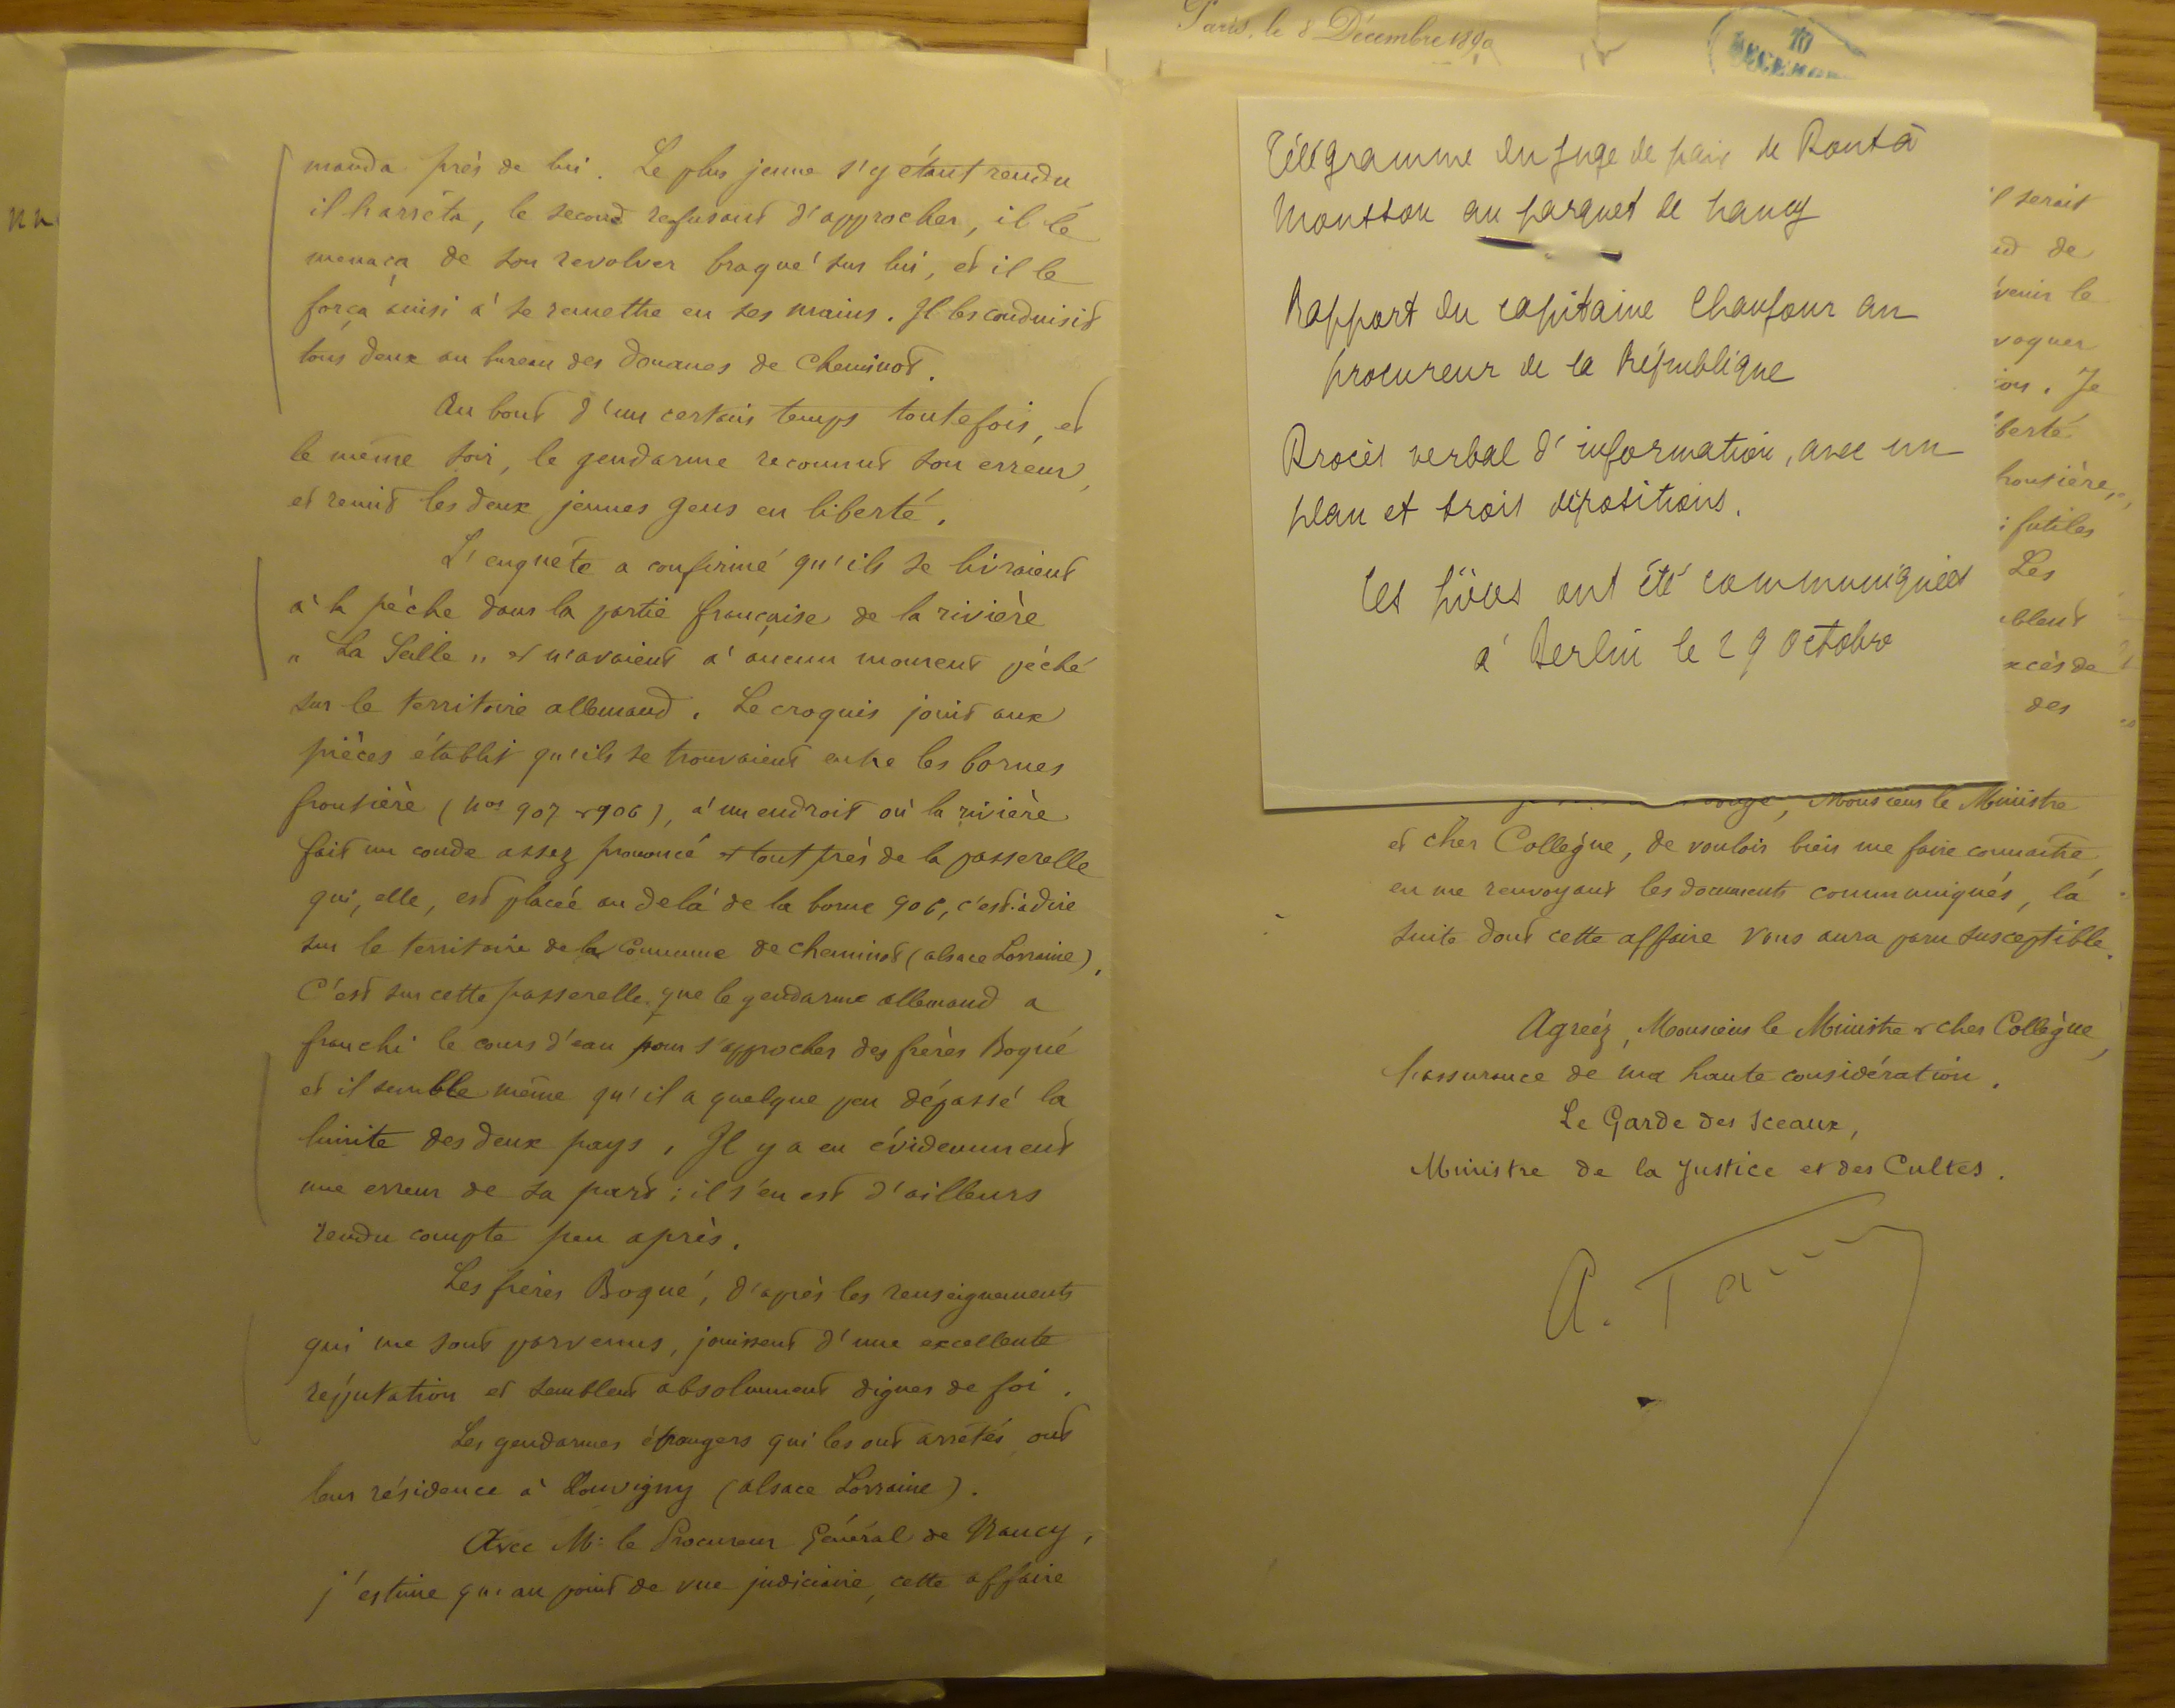 manda près de lui. Le plus jeune s'y étant rendu
il l'arrêta, le second refusant d'approcher, il le
menaça de son revolver braqué sur lui, et il le
força ainsi à se remettre en ses mains. Il les conduisit
tous deux au bureau des Douanes de Cheminot.
Au bout d'un certain temps toutefois, et
le même soir, le gendarme reconnut son erreur,
et remit les deux jeunes gens en liberté.
L'enquête a confirmé qu'ils se livraient
à la pêche dans la partie française de la rivière
"La Seille" et n'avaient à aucun moment pêché
sur le territoire allemand. Le croquis joint aux
pièces établit qu'ils se trouvaient entre les bornes
frontière (Nos 907 & 906), à un endroit où la rivière
fait un coude assez prononcé et tout près de la passerelle
qui, elle, est placée au delà de la borne 906, c'est à dire
sur le territoire de la Commune de Cheminot (Alsace Lorraine).
C'est sur cette passerelle que le gendarme allemand a
franchi le cours d'eau pour s'approcher des frères Bogué
et il semble même qu'il a quelque peu dépassé la
limite des deux pays. Il y a eu évidemment
une erreur de sa part ; il s'en est d'ailleurs
rendu compte peu après.
Les frères Bogué, d'après les renseignements
qui me sont parvenus, jouissent d'une excellente
réputation et semblent absolument dignes de foi.
Les gendarmes étrangers qui les ont arrêtés ont
leur résidence à Louvigny (Alsace Lorraine).
Avec M: le Procureur Général de Nancy,
j'estime qu'au point de vue judiciaire, cette affaire
Paris, le 8 Décembre 1890
10
DECEMBRE
Télégramme du juge de paix de Pont à
Mousson au parquet de Nancy
Rapport du capitaine Chaufour au
procureur de la République
Procès verbal d'information, avec un
plan et trois dépositions.
Ces pièces ont été communiquées
à Berlin le 29 Octobre
il serait
de
venir le
voquer
ion. Je
liberté
frontière,
futiles
Les
blent
excès de
des
Monsieur le Ministre
et cher Collègue, de vouloir bien me faire connaître,
en me renvoyant les documents communiqués, la
suite dont cette affaire vous aura paru susceptible.
Agréez, Monsieur le Ministre & cher Collègue,
l'assurance de ma haute considération.
Le Garde des Sceaux,
Ministre de la Justice et des Cultes.